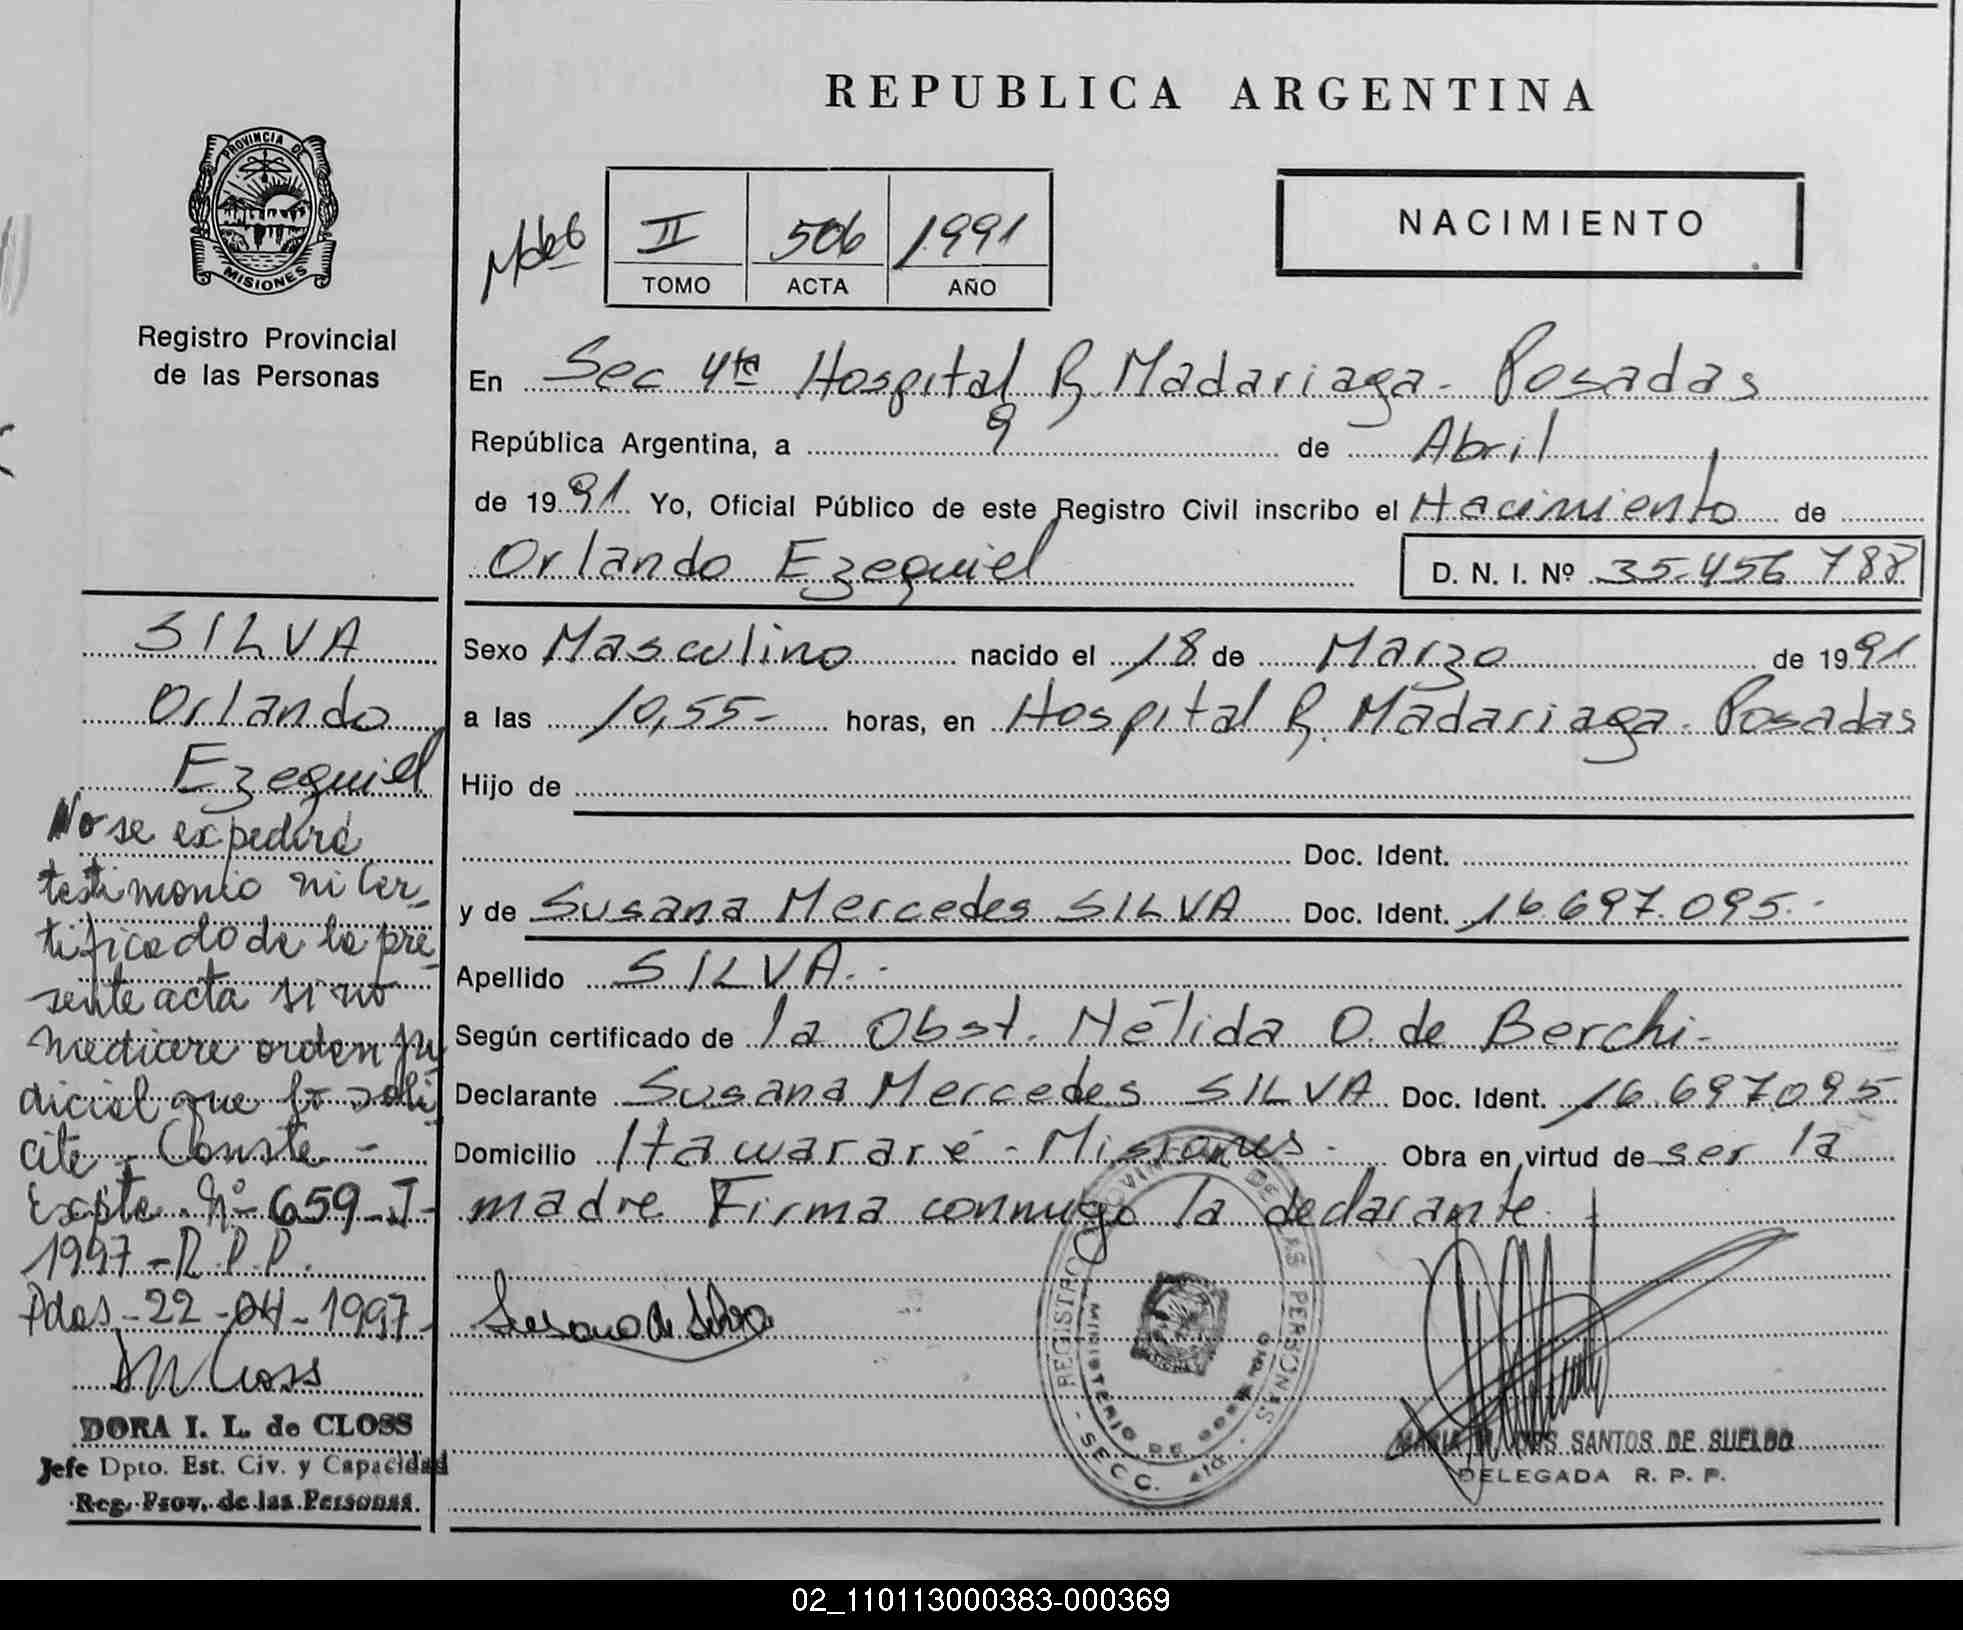 REPUBLICA ARGENTINA
PROVINCIA DE
MISIONES
Registro Provincial
de las Personas
NACIMIENTO
II 506 1991
TOMO ACTA AÑO
En Sec 4ta Hospital R. Madariaga - Posadas
República Argentina, a 9 de Abril
de 1991 Yo, Oficial Público de este Registro Civil inscribo el Nacimiento de
Orlando Ezequiel D. N. I. Nº 35.456 788
Sexo Masculino nacido el 18 de Marzo de 1991
a las 10,55- horas, en Hospital R. Madariaga - Posadas
Hijo de
Doc. Ident.
y de Susana Mercedes SILVA Doc. Ident. 16.697.095.-
Apellido SILVA.-
Según certificado de la Obst. Nélida O. de Berchi-
Declarante Susana Mercedes SILVA Doc. Ident. 16.697.095
Domicilio Itacuararé - Misiones - Obra en virtud de ser la
madre Firma conmigo la declarante
SILVA
Orlando
Ezequiel
No se expedirá
testimonio ni cer-
tificado de la pre-
sente acta si no
mediare orden ju
dicial que lo soli
cite - Conste -
Expte. Nº 659-J-
1997-R.P.P.
Pdas-22-04-1997-
DORA I. L. de CLOSS
Jefe Dpto. Est. Civ. y Capacidad
Reg. Prov. de las Personas
REGISTRO PROVINCIAL DE LAS PERSONAS
MINISTERIO DE GOBIERNO
- SECC. 4ta. -
SANTOS DE SUELDO
DELEGADA R. P. P.
02_110113000383-000369